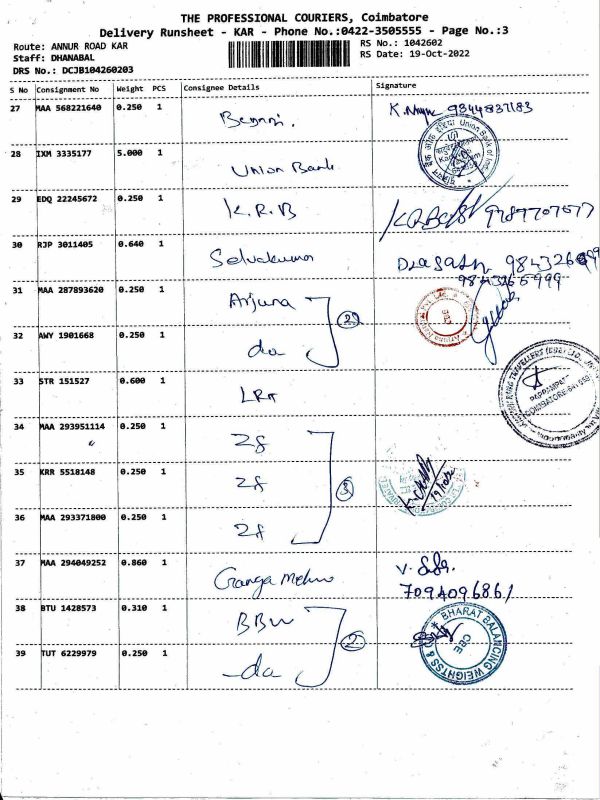 THE PROFESSIONAL COURIERS, Coimbatore
Delivery Runsheet - KAR - Phone No.:0422-3505555 - Page No.:3
Route: ANNUR ROAD KAR
RS No.: 1042602
Staff: DHANABAL
RS Date: 19-Oct-2022
DRS No.: DCJB104260203
S No Consignment No Weight PCS Consignee Details Signature
27 MAA 568221640 0.250 1 9344837183
28 IXM 3335177 5.000 1 Union Bank
29 EDQ 22245672 0.250 1 K.R.B
30 RJP 3011405 0.640 1 Selvakumar
9843265999
31 MAA 287893620 0.250 1 Arjuna
2
32 AWY 1901668 0.250 1 do
33 STR 151527 0.600 1 LRT
PAPPAMPATTI
COIMBATORE
34 MAA 293951114 0.250 1 ZF
35 KRR 5518148 0.250 1 ZF 3
36 MAA 293371800 0.250 1 ZF
37 MAA 294049252 0.860 1 Ganga V.
7094096861
38 BTU 1428573 0.310 1 BBW
2
BHARAT BALANCING WEIGHTSS &
CBE
39 TUT 6229979 0.250 1 do